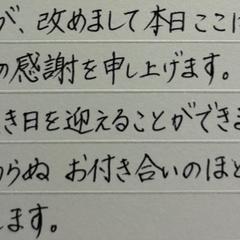 が、改めまして本日ここに
の感謝を申し上げます。
き日を迎えることができま
わらぬ お付き合いのほど
します。